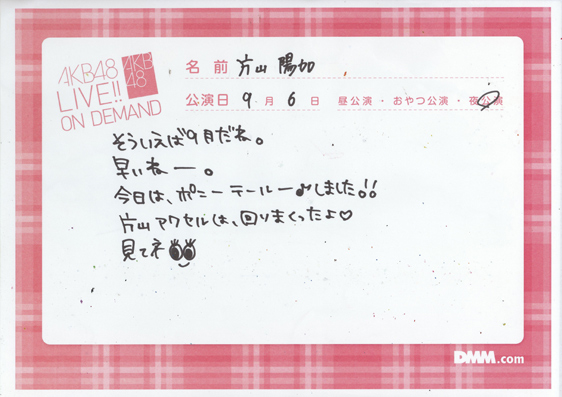 AKB48
LIVE!!
ON DEMAND
AKB
48
名前 片山 陽加
公演日 9月6日 昼公演・おやつ公演・夜公演
そういえば9月だね。
早いねー。
今日は、ポニーテールー♪しました!!
片山アクセルは、回りまくったよ♡
見てネ
DMM.com